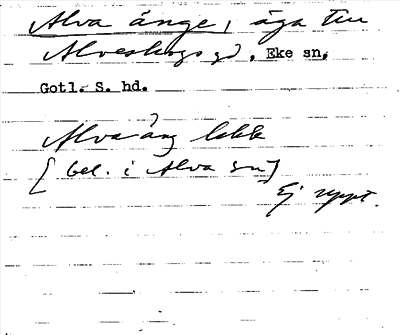 Alva änge, äga till
Alveskogs gd, Eke sn,
Gotl. S. hd.
Alvaäŋ lokk
[bel. i Alva sn]
Ej uppt.